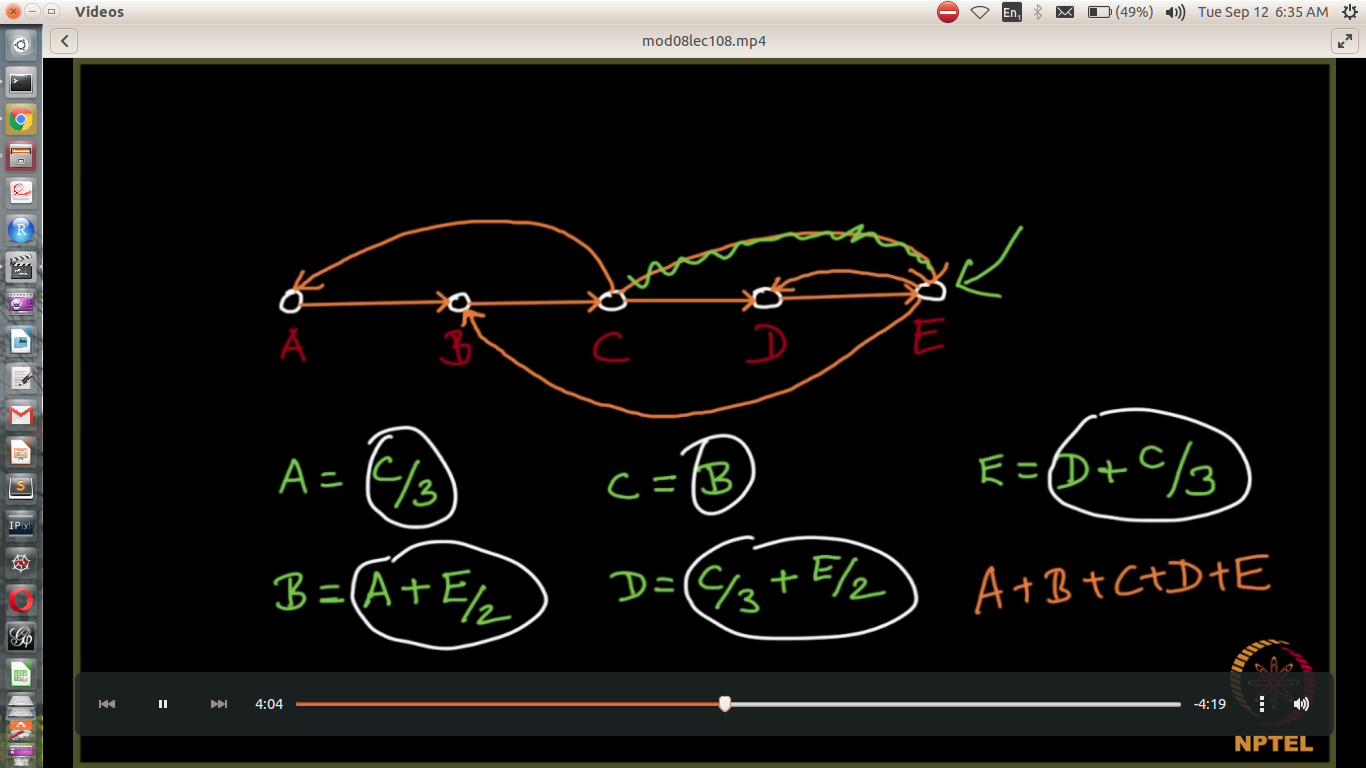 Videos
En1
(49%)
Tue Sep 12 6:35 AM
mod08lec108.mp4
A B C D E
A = C/3 C = B E = D + C/3
B = A + E/2 D = C/3 + E/2 A + B + C + D + E
4:04 -4:19
NPTEL
R
S
IP[y]: